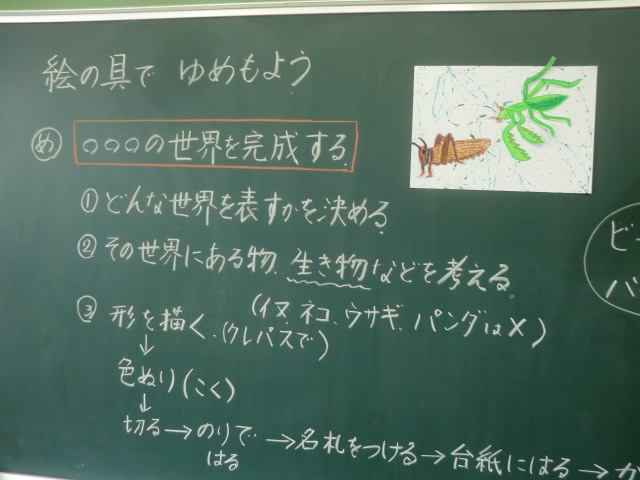 絵の具で ゆめもよう
め ○○○の世界を完成する。
① どんな世界を表すかを決める。
② その世界にある物、生き物などを考える。
(イヌ、ネコ、ウサギ、パンダは×)
③ 形を描く。(クレパスで)
↓
色ぬり(こく)
↓
切る→のりではる→名札をつける→台紙にはる→か
ビ
バ